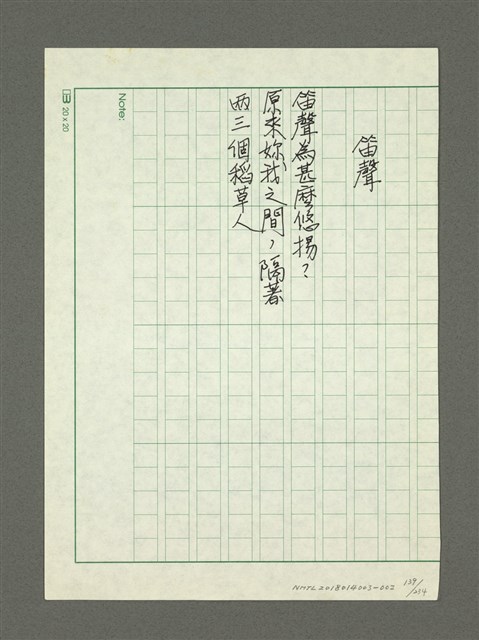 笛聲
笛聲為甚麼悠揚？
原來妳我之間，隔著
兩三個稻草人
Note:
20 x 20
NMTL2018014003-002
139/254